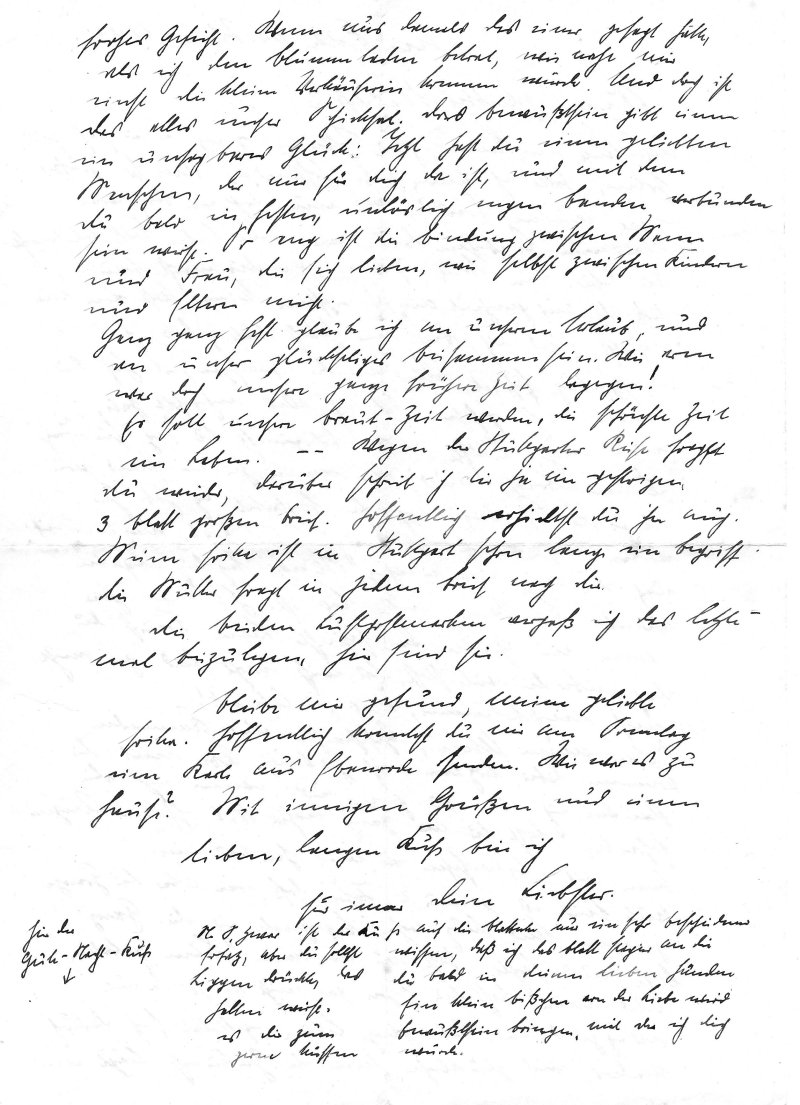 frohes Gesicht. Wenn uns damals das einer gesagt hätte,
als ich den Blumenladen betrat, wie nahe mir
einst die kleine Verkäuferin kommen würde. Und doch ist
das alles unser Schicksal. Das Bewußtsein gibt einem
ein unsagbares Glück: Jetzt hast du einen geliebten
Menschen, der nur für dich da ist, und mit dem
du bald in festen, unlöslich engen Banden verbunden
sein wirst. So eng ist die Bindung zwischen Mann
und Frau, die sich lieben, wie selbst zwischen Kindern
und Eltern nicht.
Ganz ganz fest glaube ich an unseren Urlaub, und
an unser glückseliges Beisammensein. Wie arm
war doch unsere ganze frühere Zeit dagegen!
Es soll unsere Braut-Zeit werden, die schönste Zeit
im Leben. -- Wegen der Stuttgarter Reise fragst
du wieder, darüber schrieb ich dir ja im gestrigen
3 Blatt großen Brief. Hoffentlich erhieltst du ihn auch.
Meine Erika ist in Stuttgart schon lange ein Begriff.
Die Mutter fragt in jedem Brief nach dir.
Die beiden Luftpostmarken vergaß ich das letzte-
mal beizulegen, hier sind sie.
Bleibe mir gesund, meine geliebte
Erika. Hoffentlich konntest du mir am Sonntag
eine Karte aus Ebenrode senden. Wie war es zu
Hause? Mit innigen Grüßen und einem
lieben, langen Kuß bin ich
für immer Dein Liebster.
Hier der
Gute-Nacht-Kuß
↓
N.S. Zwar ist der Kuß auf die Blattecke nur ein sehr bescheidener
Ersatz, aber du sollst wissen, daß ich das Blatt Papier an die
Lippen drückte, das du bald in deinen lieben Händen
halten wirst. Ein klein bißchen von der Liebe wird
es dir zum Bewußtsein bringen, mit der ich dich
gerne küssen würde.